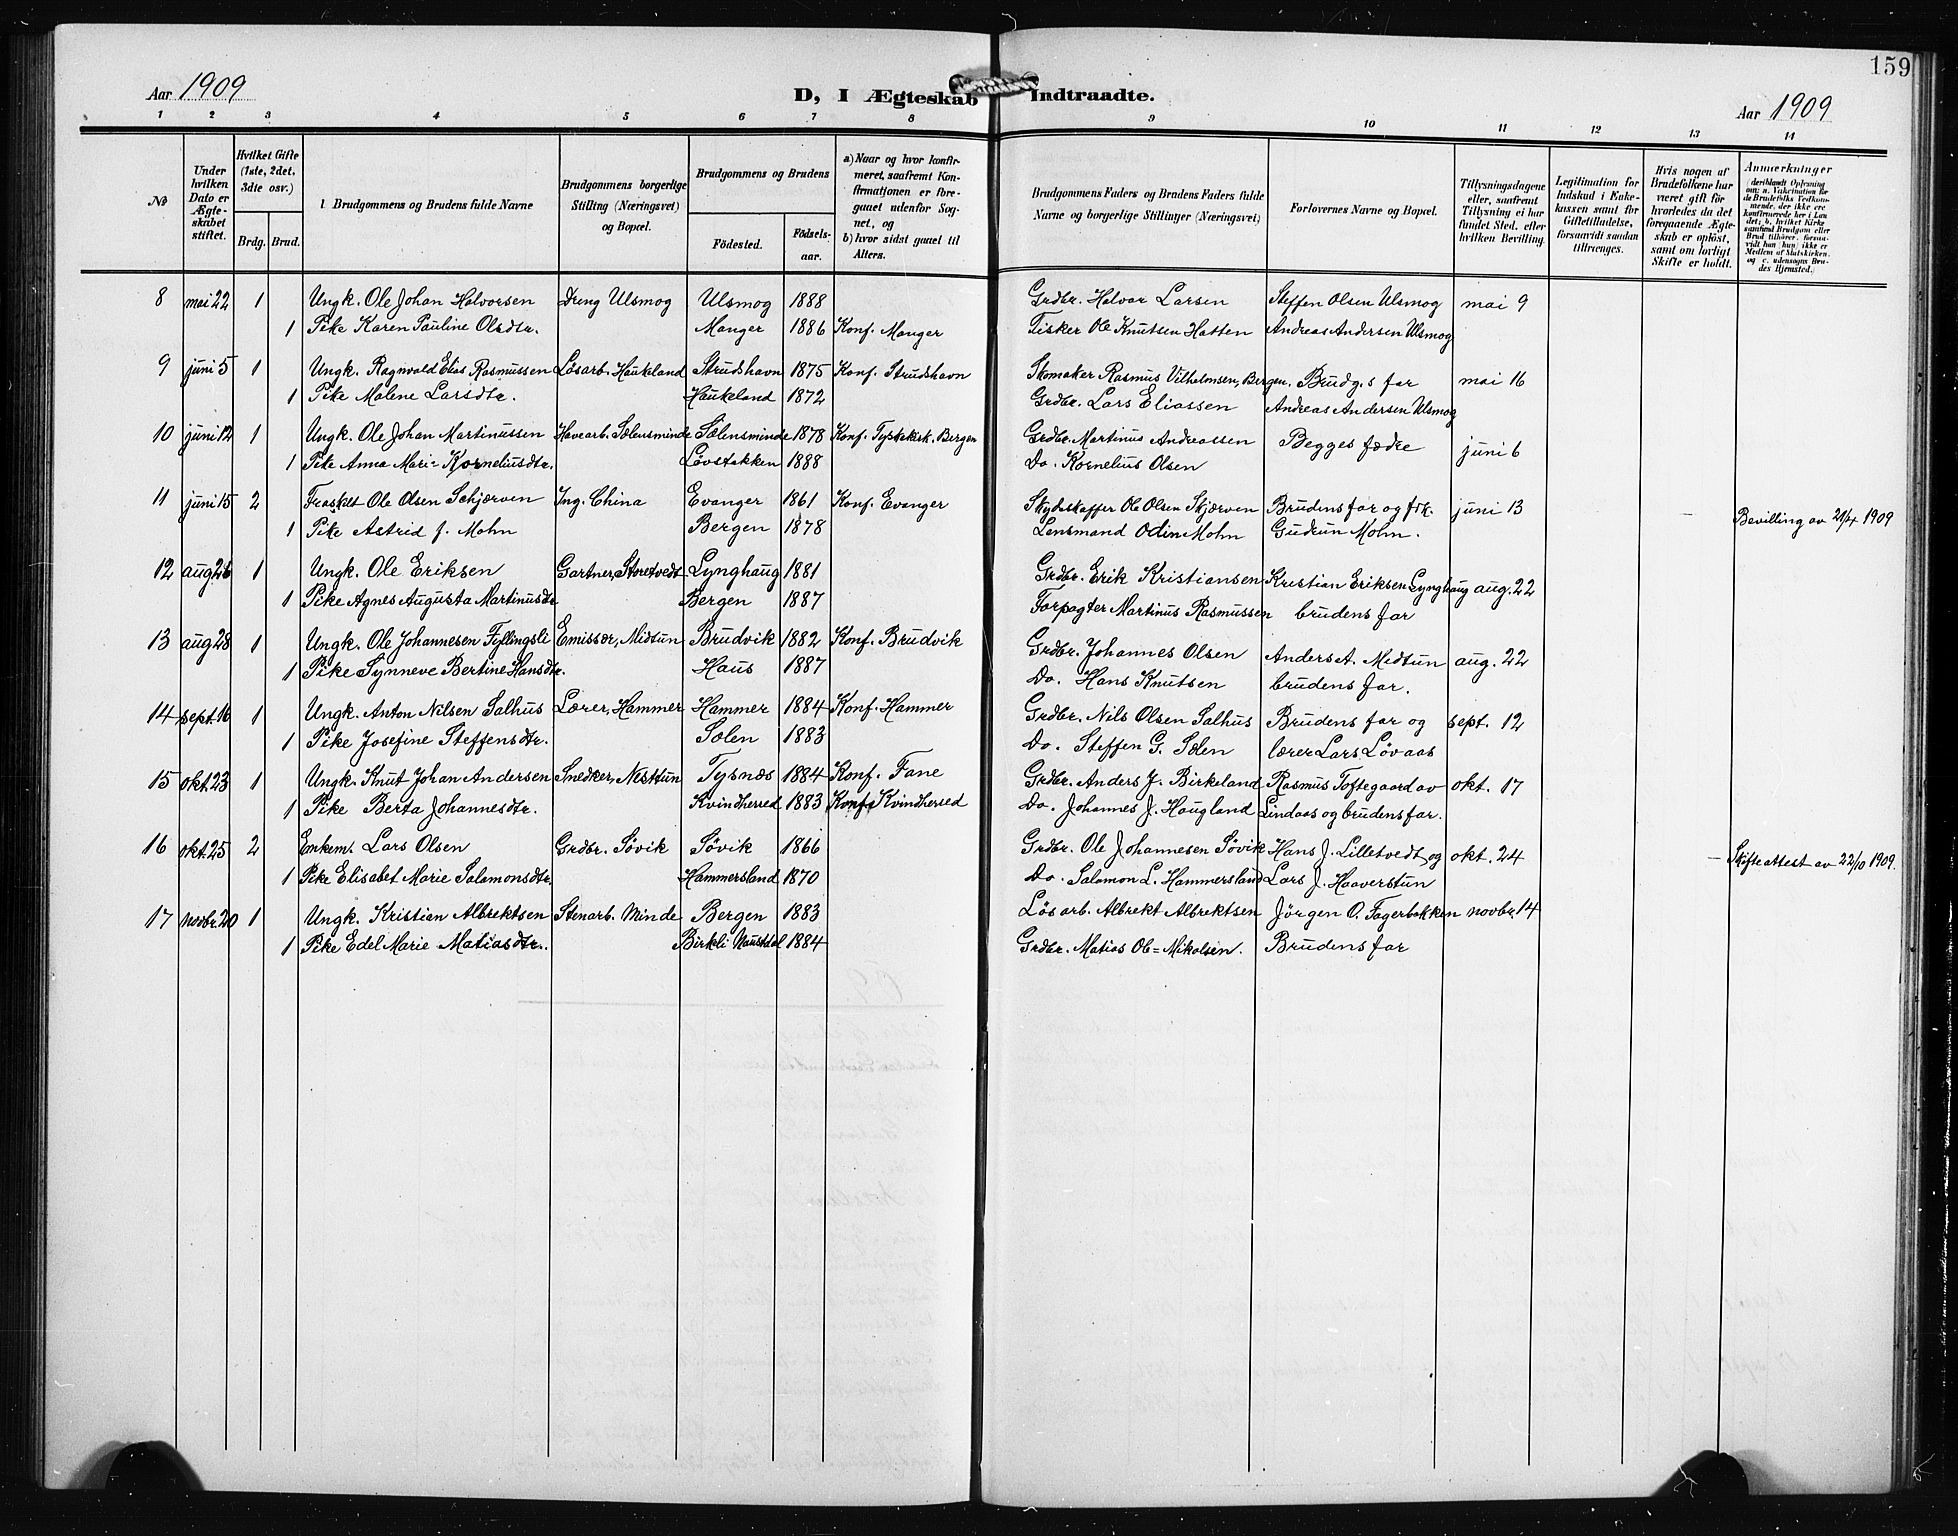 159
Aar 1909 D, I Ægteskab Indtraadte. Aar 1909
1 2 3 4 5 6 7 8 9 10 11 12 13 14
No
Under hvilken Dato er Ægteskabet stiftet.
Hvilket Gifte (1ste, 2det, 3dte osv.)
Brdg. Brud.
Brudgommens og Brudens fulde Navne
Brudgommens borgerlige Stilling (Næringsvei) og Bopæl.
Brudgommens og Brudens
Fødested. Fødselsaar.
a) Naar og hvor konfirmeret, saafremt Konfirmationen er foregaaet udenfor Sognet, og
b) hvor sidst gaaet til Alters.
Brudgommens Faders og Brudens Faders fulde Navne og borgerlige Stillinger (Næringsvei)
Forlovernes Navne og Bopæl.
Tillysningsdagene eller, saafremt Tillysning ei har fundet Sted, efter hvilken Bevilling.
Legitimation for Indskud i Enkekassen samt for Giftetilladelse, forsaavidt saadan tiltrænges.
Hvis nogen af Brudefolkene har været gift før hvorledes da det foregaaende Ægteskab er opløst, samt om lovligt Skifte er holdt.
Anmerkninger
(deriblandt Oplysning om: a. Vakcination for de Brudefolks Vedkommende, der ikke ere konfirmerede her i Landet; b. hvilket Kirkesamfund Brudgom eller Brud tilhører, forsaavidt han (hun) ikke er Medlem af Statskirken, og c. udensogns Brudes Hjemsted.
8 mai 22 1 Ungk. Ole Johan Halvorsen Dreng Ulsmog Ulsmog 1888 Grdbr. Halvor Larsen Steffen Olsen Ulsmog mai 9
1 Pike Karen Pauline Olsdtr. Manger 1886 Konf. Manger Fisker Ole Knutsen Hatten Andreas Andersen Ulsmog
9 juni 5 1 Ungk. Ragnvald Elias Rasmussen Løsarb. Haukeland Strudshavn 1875 Konf. Strudshavn Skomaker Rasmus Vilhelmsen, Bergen. Brudg.s far mai 16
1 Pike Malene Larsdtr. Haukeland 1872 Grdbr. Lars Eliassen Andreas Andersen Ulsmog
10 juni 12 1 Ungk. Ole Johan Martinussen Havearb. Sælensminde Sælensminde 1878 Konf. Tyskekirk. Bergen Grdbr. Martinus Andreassen Begges fædre juni 6
1 Pike Anna Marie Korneliusdtr. Løvstakken 1888 Do. Kornelius Olsen
11 juni 15 2 Fraskilt Ole Olsen Schjærven Ing. China Evanger 1861 Konf. Evanger Skydskaffer Ole Olsen Skjærven Brudens far og frk. juni 13
1 Pike Astrid J. Mohn Bergen 1878 Lensmand Odin Mohn Gudrun Mohn. – Bevilling av 21/4 1909
12 aug. 26 1 Ungk. Ole Eriksen Gartner, Storetvedt Lynghaug 1881 Grdbr. Erik Kristiansen Kristian Eriksen Lynghaug aug. 22
1 Pike Agnes Augusta Martinusdtr. Bergen 1887 Forpagter Martinus Rasmussen brudens far
13 aug 28 1 Ungk. Ole Johannesen Fyllingsli Emissær, Midtun Brudvik 1882 Konf. Brudvik Grdbr. Johannes Olsen Anders A. Midtun aug. 22
1 Pike Synneve Bertine Hansdtr. Haus 1887 Do. Hans Knutsen brudens far.
14 sept. 16 1 Ungk. Anton Nilsen Salhus Lærer, Hammer Hammer 1884 Konf. Hammer Grdbr. Nils Olsen Salhus Brudens far og sept. 12
1 Pike Josefine Steffensdtr. Sælen 1883 Do. Steffen G. Sælen lærer Lars Løvaas
15 okt. 23 1 Ungk. Knut Johan Andersen Snedker, Nesttun Tysnæs 1884 Konf. Fane Grdbr. Anders J. Birkeland Rasmus Toftegaard av okt. 17
1 Pike Berta Johannesdtr. Kvindherred 1883 Konf. Kvindherred Do. Johannes J. Haugland Lindaas og brudens far.
16 okt. 25 2 Enkem. Lars Olsen Grdbr. Søvik Søvik 1866 Grdbr. Ole Johannesen Søvik Hans J. Lilletvedt og okt. 24 – Skifteattest av 22/10 1909.
1 Pike Elisabet Marie Salamonsdtr. Hammersland 1870 Do. Salamon L. Hammersland Lars J. Haaverstun
17 novbr. 20 1 Ungk. Kristian Albrektsen Stenarb. Minde Bergen 1883 Løsarb. Albrekt Albrektsen Jørgen O. Fagerbakken novbr. 14
1 Pike Edel Marie Matiasdtr. Birkeli Naustdal 1884 Grdbr. Matias Ole Mikalsen. Brudens far